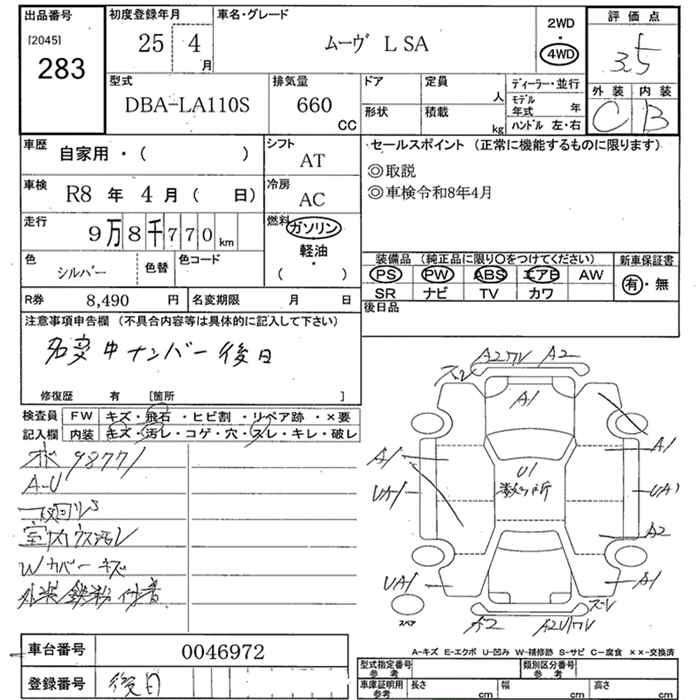 出品番号
[2045]
283
初度登録年月
25 4
月
車名・グレード
ムーヴ L SA
2WD
・
4WD
評価点
3.5
外装 内装
C B
型式
DBA-LA110S
排気量
660
CC
ドア
定員
人
形状
積載
kg
ディーラー・並行
モデル年式 年
ハンドル 左・右
車歴
自家用・( )
シフト
AT
車検
R8 年 4 月 ( 日)
冷房
AC
走行
9万8千770km
燃料
ガソリン
軽油
・
( )
色
シルバー
色替
色コード
R券 8,490 円
名変期限 月 日
セールスポイント (正常に機能するものに限ります)
◎取説
◎車検令和8年4月
装備品 (純正品に限り〇をつけてください)
PS PW ABS エアB AW
SR ナビ TV カワ
新車保証書
有・無
後日品
注意事項申告欄 (不具合内容等は具体的に記入して下さい)
名変中ナンバー後日
修復歴 有 [箇所 ]
検査員
記入欄
FW キズ・飛石・ヒビ割・リペア跡・×要
内装 キズ・汚レ・コゲ・穴・スレ・キレ・破レ
98771
A-U
室内ウス汚レ
Wカバーキズ
外装鉄粉付着
ズレ A2ワレ A2
A1
A1 A1
U1
数ヶ所
UA1 UA1
A2
UA1 A1
ズレ
A2 A2U1ワレ
スペア
A-キズ E-エクボ U-凹み W-補修跡 S-サビ C-腐食 ××-交換済
車台番号 0046972
登録番号 後日
型式指定番号
参考
類別区分番号
参考
車庫証明用
参考
長さ cm
幅 cm
高さ cm